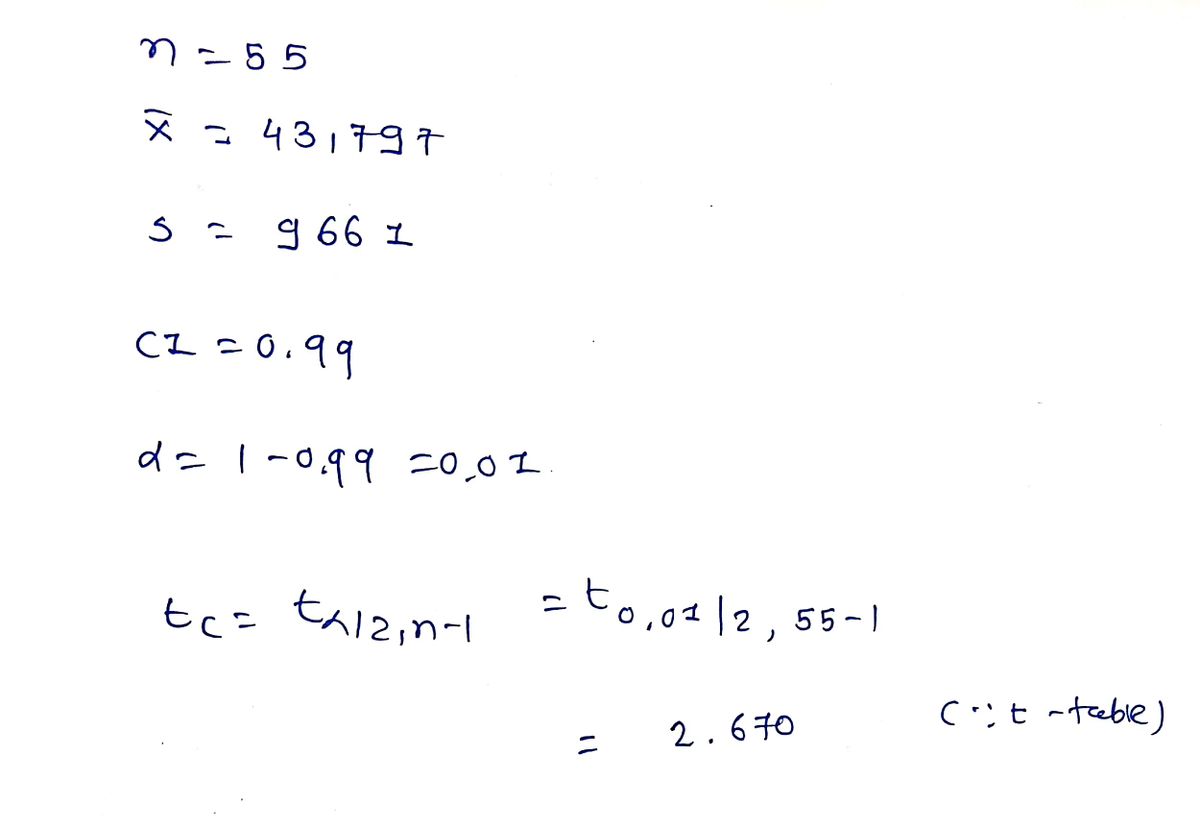 n = 55
x̄ = 43,797
s = 9661
CI = 0.99
α = 1 - 0.99 = 0.01.
tc = tα/2,n-1 = t0.01/2, 55-1
= 2.670 (∵ t-table)